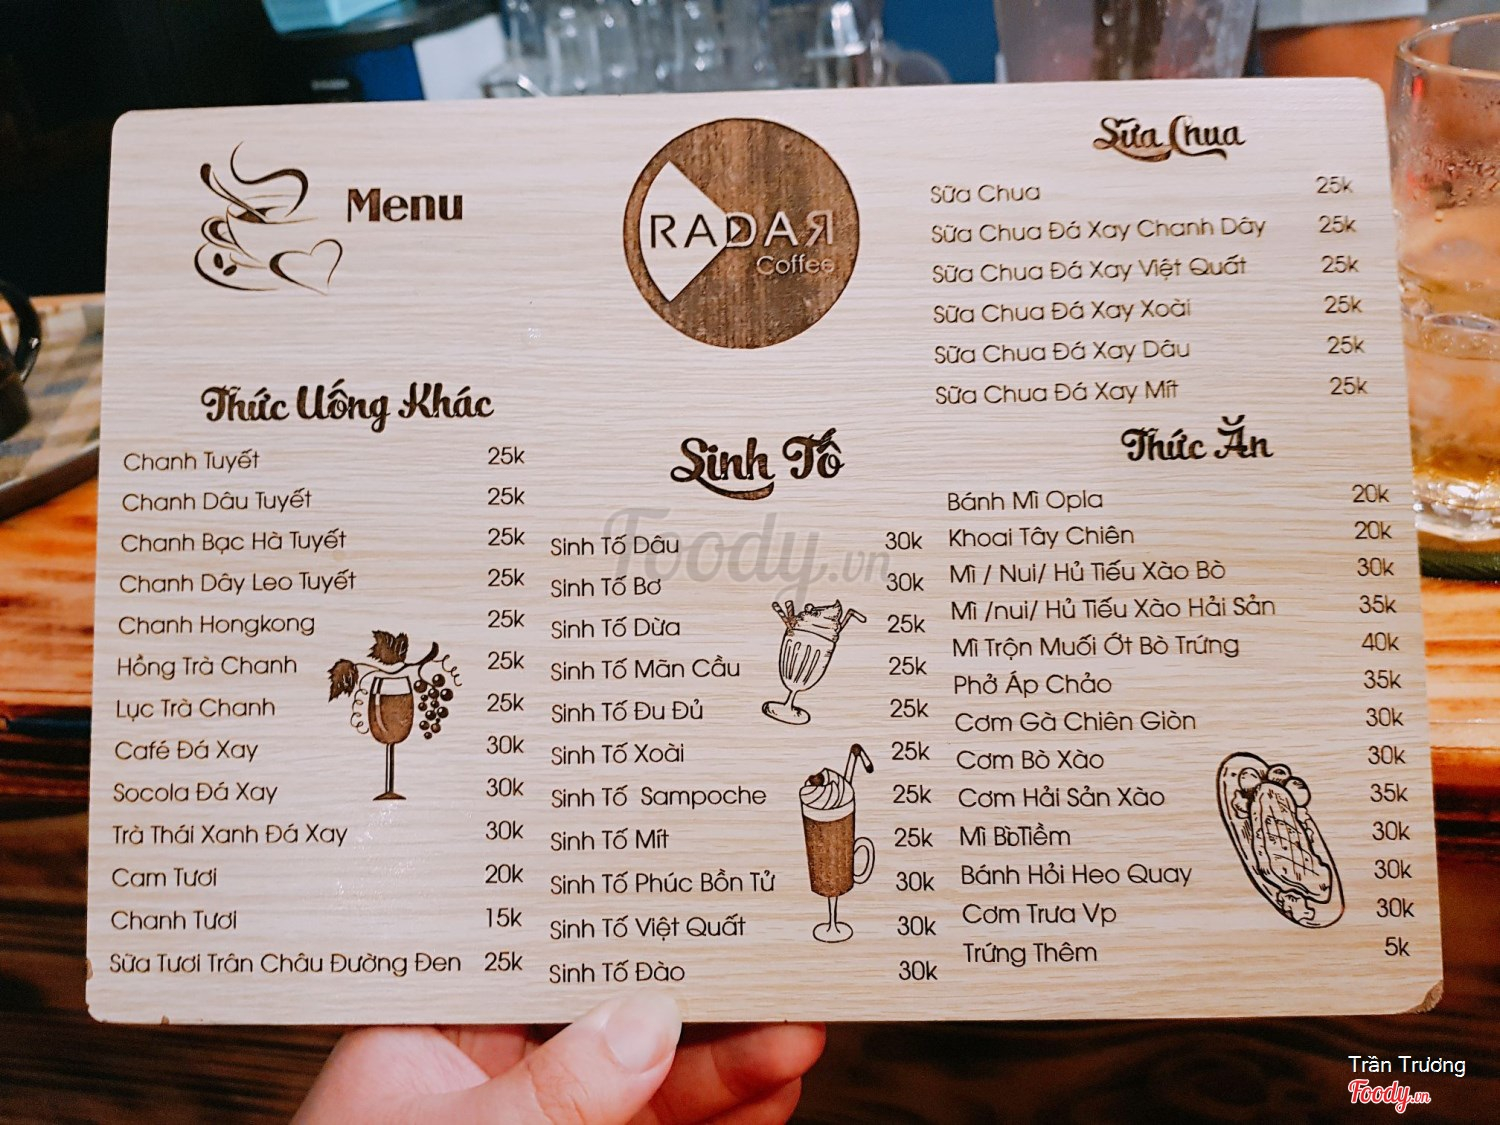 Menu
RADAR
Coffee
Thức Uống Khác
Chanh Tuyết 25k
Chanh Dâu Tuyết 25k
Chanh Bạc Hà Tuyết 25k
Chanh Dây Leo Tuyết 25k
Chanh Hongkong 25k
Hồng Trà Chanh 25k
Lục Trà Chanh 25k
Café Đá Xay 30k
Socola Đá Xay 30k
Trà Thái Xanh Đá Xay 30k
Cam Tươi 20k
Chanh Tươi 15k
Sữa Tươi Trân Châu Đường Đen 25k
Sinh Tố
Sinh Tố Dâu 30k
Sinh Tố Bơ 30k
Sinh Tố Dừa 25k
Sinh Tố Mãn Cầu 25k
Sinh Tố Đu Đủ 25k
Sinh Tố Xoài 25k
Sinh Tố Sampoche 25k
Sinh Tố Mít 25k
Sinh Tố Phúc Bồn Tử 30k
Sinh Tố Việt Quất 30k
Sinh Tố Đào 30k
Sữa Chua
Sữa Chua 25k
Sữa Chua Đá Xay Chanh Dây 25k
Sữa Chua Đá Xay Việt Quất 25k
Sữa Chua Đá Xay Xoài 25k
Sữa Chua Đá Xay Dâu 25k
Sữa Chua Đá Xay Mít 25k
Thức Ăn
Bánh Mì Opla 20k
Khoai Tây Chiên 20k
Mì / Nui/ Hủ Tiếu Xào Bò 30k
Mì /nui/ Hủ Tiếu Xào Hải Sản 35k
Mì Trộn Muối Ớt Bò Trứng 40k
Phở Áp Chảo 35k
Cơm Gà Chiên Giòn 30k
Cơm Bò Xào 30k
Cơm Hải Sản Xào 35k
Mì BòTiềm 30k
Bánh Hỏi Heo Quay 30k
Cơm Trưa Vp 30k
Trứng Thêm 5k
Foody.vn
Trần Trương
Foody.vn